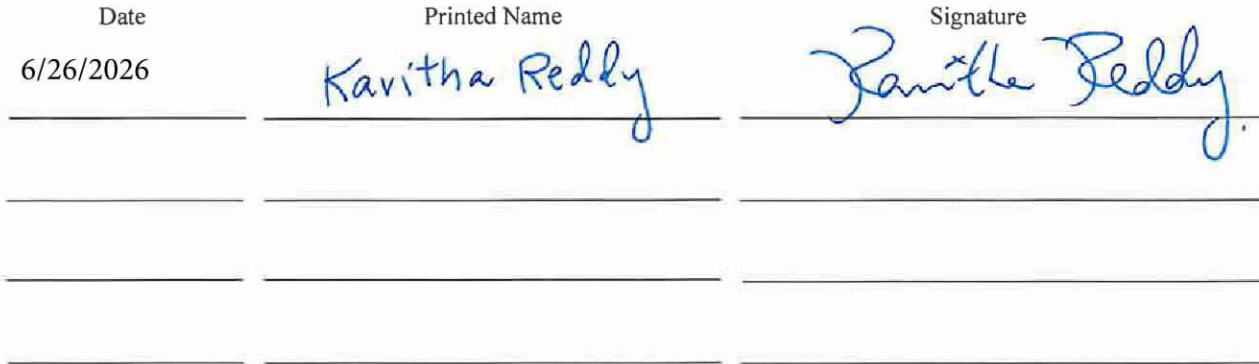 Date Printed Name Signature
6/26/2026 Kavitha Reddy Kavitha Reddy.